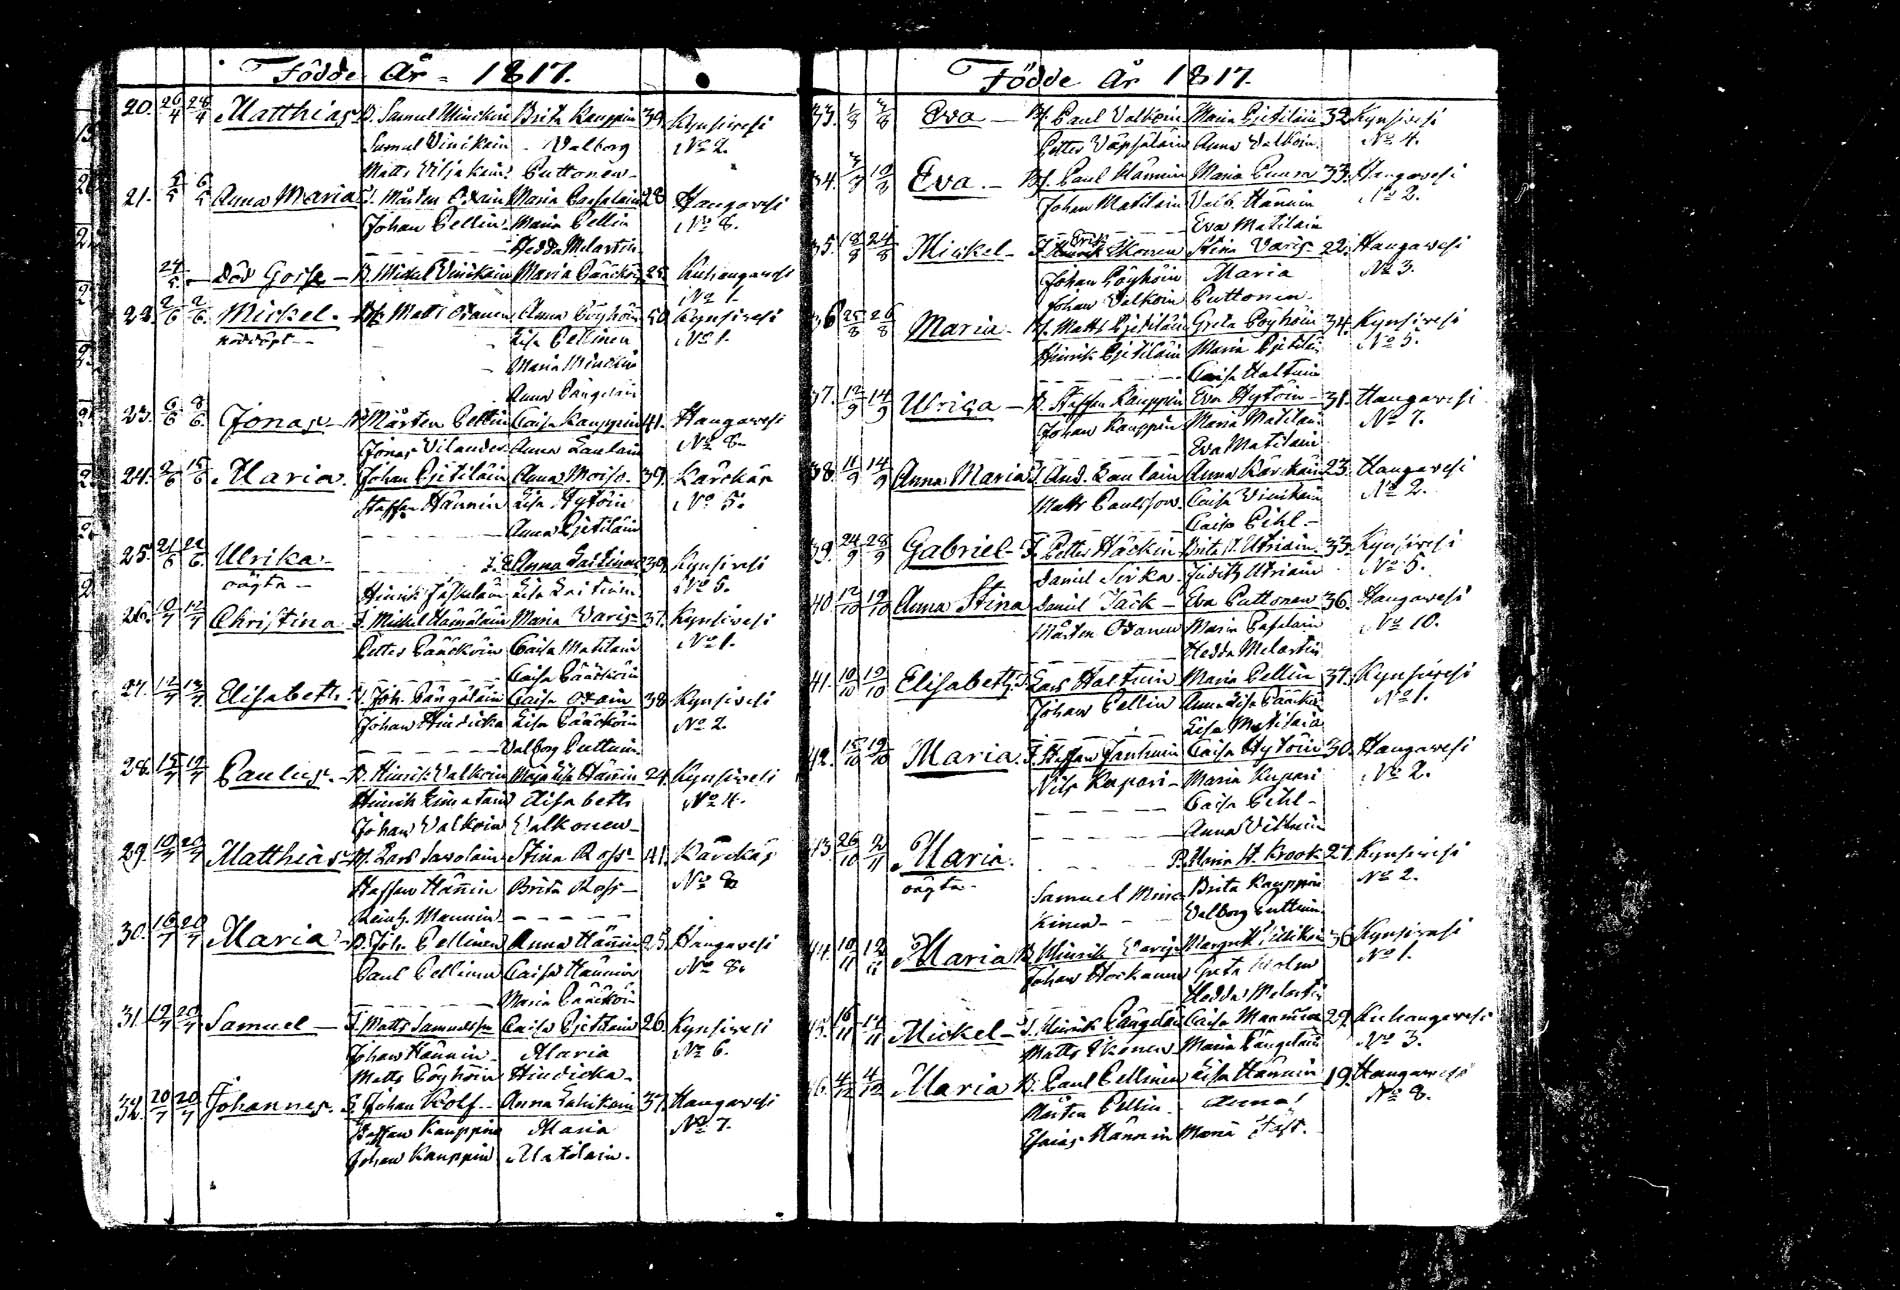 Födde År - 1817.
20. 26/4 28/4 Matthias B. Samuel Minckin Brita Kauppin 39. Kynsivesi
Samuel Vinikain - Valborg No 2.
Matts Viljakain. Puttonen -
21. 5/5 6/5 Anna Maria Mårten Oxain Maria Papalain 28 Hangavesi
Johan Pellin. Maria Pellin No 8.
Hedda Melartin
24/5 - död Gosse - B. Mickel Vinikain Maria Pääckön 25. Kuhangavesi
No 1.
22. 2/6 2/6 Mickel. Bf. Matts Oxanen Anna Pöyhöin 40. Kynsivesi
nöddöpt - - Lisa Pellinen No 1.
Maria Minckin
Anna Pängelain
23. 6/6 8/6 Jonas - B Mårten Pellin Caisa Kauppin 41. Hangavesi
Jonas Vilander Anna Laulain No 8.
24. 2/6 15/6 Maria. Johan Pjetiläin Anna Moiso. 39. Kärckäs
Staffan Hännin Lisa Hytöin No 5.
Anna Pjetiläin
25. 21/6 22/6 Ulrika. Anna Laitinen 30. Kynsivesi
oägta - Hinrik Lisa Laitinen No 5.
26. 12/7 Christina I. Mickel Hämäläin Maria Varis 37. Kynsivesi
Petter Pääcköin Caisa Matilain No 1.
Caisa Pääcköin
27. 12/7 13/7 Elisabeth. Joh. Pängäläin Caisa Oxain 38 Kynsivesi
Johan Hindicka Lisa Pääcköin No 2.
Valborg Puttuin.
28. 15/7 19/7 Paulus. - B. Hinrik Valkoin Maja Lisa Hännin 24. Kynsivesi
Hinrik Elisabeth No 4.
Johan Valkoin Valkonen -
29. 19/7 20/7 Matthias Bf. Lars Savolain Stina Ross - 41. Kärckäs
Staffan Hännin Brita Ross - No 8
Reinh. Mannin - - - -
30. 18/7 20/7 Maria - B. Joh. Pellinen Anna Hännin 25. Hangavesi
Paul Pellinen Caisa Hännin No 8.
Maria Pääcköin
31. 19/7 20/7 Samuel - I. Matts Samuelsson Caisa Pjetiläin 26. Kynsivesi
Johan Hännin - Maria No 6.
Matts Pöyhöin Hindicka -
32. 20/7 20/7 Johannes. S. Johan Rolf - Anna Lahikain 37. Hangavesi
Staffan Kauppin Maria No 7.
Johan Kauppin Matilain.
Födde År 1817.
33. 1/8 3/8 Eva - Bf. Paul Valkoin Maria Pjetiläin 32. Kynsivesi
Petter Väpsäläin Anna Valkoin. No 4.
34. 10/8 Eva. - Bf. Paul Hännin Maria Puura 33. Hangavesi
Johan Matilain Valb. Hännin No 2.
Eva Matilain
35. 18/8 24/8 Mickel - Ikonen Stina Varis - 22. Hangavesi
Johan Pöyhöin Maria No 3.
Johan Valkoin Puttonen -
36 25/8 26/8 Maria - Bf. Matts Pjetiläin Greta Pöyhöin 34. Kynsivesi
Hinrik Pjetiläin Maria Pjetiläin No 5.
Caisa Haltuin
37. 12/9 14/9 Ulrica - B. Staffan Kauppin Eva Hytöin - 31. Hangavesi
Johan Kauppin Maria Matilain No 7.
Eva Matilain
38. 11/9 14/9 Anna Maria And. Laulain Anna Kärckäin 23. Hangavesi
Matts Paulsson. Caisa Vinikain No 2.
Caisa Pihl -
39. 24/9 28/9 Gabriel - I. Petter Häckin Brita Utriain. 33. Kynsivesi
Daniel Sirka. Judith Utriain No 5.
40. 12/10 19/10 Anna Stina Daniel Jäck - Eva Puttonen 36. Hangavesi
Mårten Oxanen Maria Papalain No 10.
Hedda Melartin
41. 10/10 19/10 Elisabeth. Lars Haltuin Maria Pellin 37. Kynsivesi
Johan Pellin Anna Lisa Pääckön No 1.
Lisa Matilain
42. 15/10 19/10 Maria. I. Staffan Jantunin Caisa Hytöin 30. Hangavesi
Nils Kapari - Maria Kapari No 2.
Caisa Pihl -
Anna
43 26/10 2/11 Maria. P. Maria Krook 27. Kynsivesi
oägta - Samuel Minc- Brita Kauppin No 2.
kinen - - Valborg Puttuin.
44. 10/11 12/11 Maria B. Hinrik Varis Margret 36 Kynsivesi
Johan Hockanen Greta Holm No 1.
Hedda Melartin
45. 16/11 17/11 Mickel - I. Hinrik Pängäläin Caisa Manninen 29. Kuhangavesi
Matts Ikonen Maria Pängäläin No 3.
46. 4/12 4/12 Maria B. Paul Pellinen Lisa Hännin 19. Hangavesi
Mårten Pellin - Anna No 8.
Esaias Hännin Maria Fast.